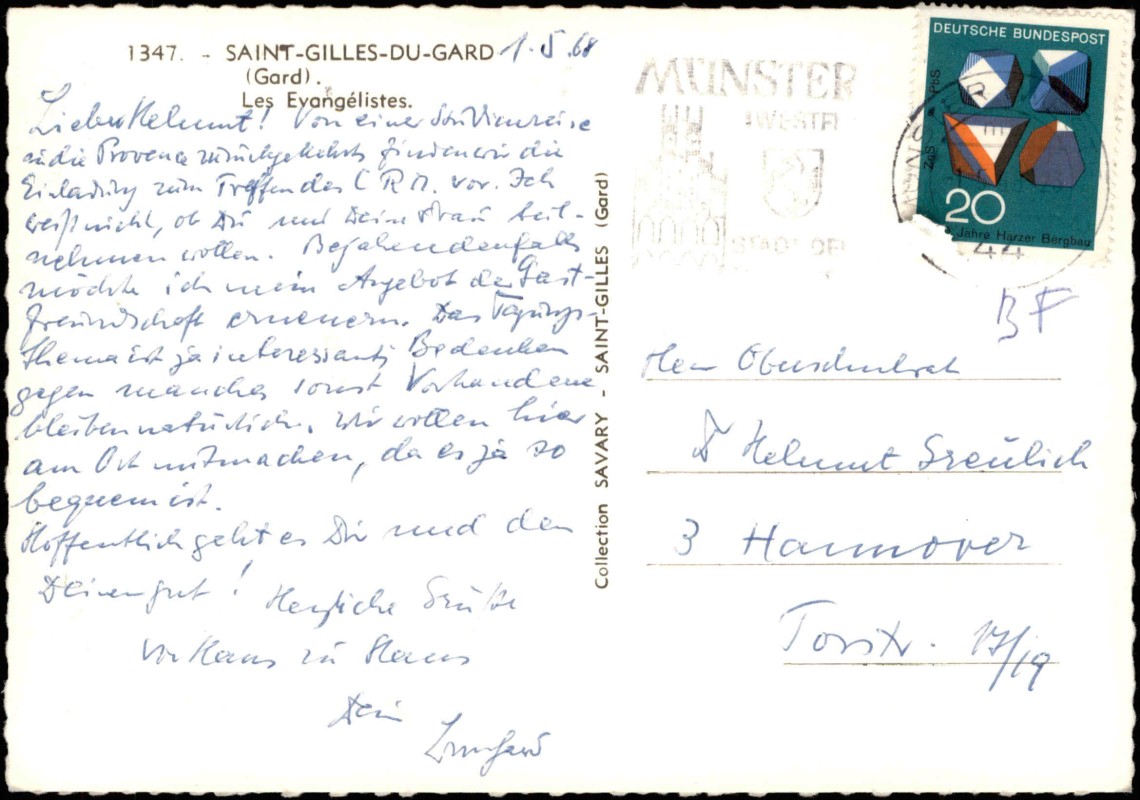 1347. - SAINT-GILLES-DU-GARD 1.5.68
(Gard).
Les Evangélistes.
Lieber Helmut! Von einer Studienreise
in die Provence zurückgekehrt, finden wir die
Einladung zum Treffen des C R M. vor. Ich
weiß nicht, ob Du und Deine Frau teil-
nehmen wollen. Bejahendenfalls
möchte ich mein Angebot der Gast-
freundschaft erneuern. Das Tagungs-
thema ist ja interessant; Bedenken
gegen manches sonst Vorhandene
bleiben natürlich. Wir wollen hier
am Ort mitmachen, da es ja so
bequem ist.
Hoffentlich geht es Dir und den
Deinen gut! Herzliche Grüße
von Haus zu Haus
Dein
Collection SAVARY - SAINT-GILLES (Gard)
MÜNSTER
(WESTF)
DEUTSCHE BUNDESPOST
PbS
ZnS
20
Jahre Harzer Bergbau
44
BF
Herrn Oberschulrat
Dr Helmut Greulich
3 Hannover
Torstr. 17/19